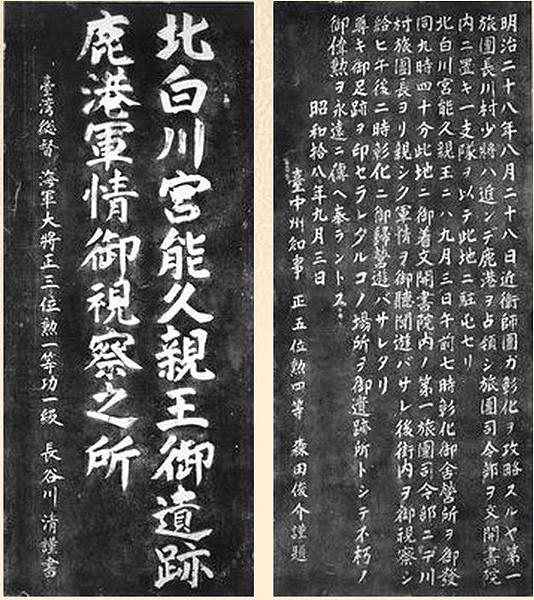 北白川宮能久親王御遺跡
鹿港軍情御視察之所
臺灣總督 海軍大將正三位勲一等功一級 長谷川清謹書
明治二十八年八月二十八日近衛師團ガ彰化ヲ攻略スルヤ第一
旅團長川村少將ハ進ンデ鹿港ヲ占領シ旅團司令部ヲ文開書院
內ニ置キ一支隊ヲ以テ此地ニ駐屯セリ
北白川宮能久親王ニハ九月三日午前七時彰化御舍營所ヲ御發
同九時四十分此地ニ御着文開書院內ノ第一旅團司令部ニテ川
村旅團長ヨリ親シク軍情ヲ御聽聞遊バサレ後街內ヲ御視察シ
給ヒ午後二時彰化ニ御歸營遊バサレタリ
尊キ御足跡ヲ印セラレタルコノ場所ヲ御遺跡所トシテ不朽ノ
御偉勳ヲ永遠ニ傳ヘ奉ラントス
昭和拾八年九月三日
臺中州知事 正五位勲四等 森田俊介謹題